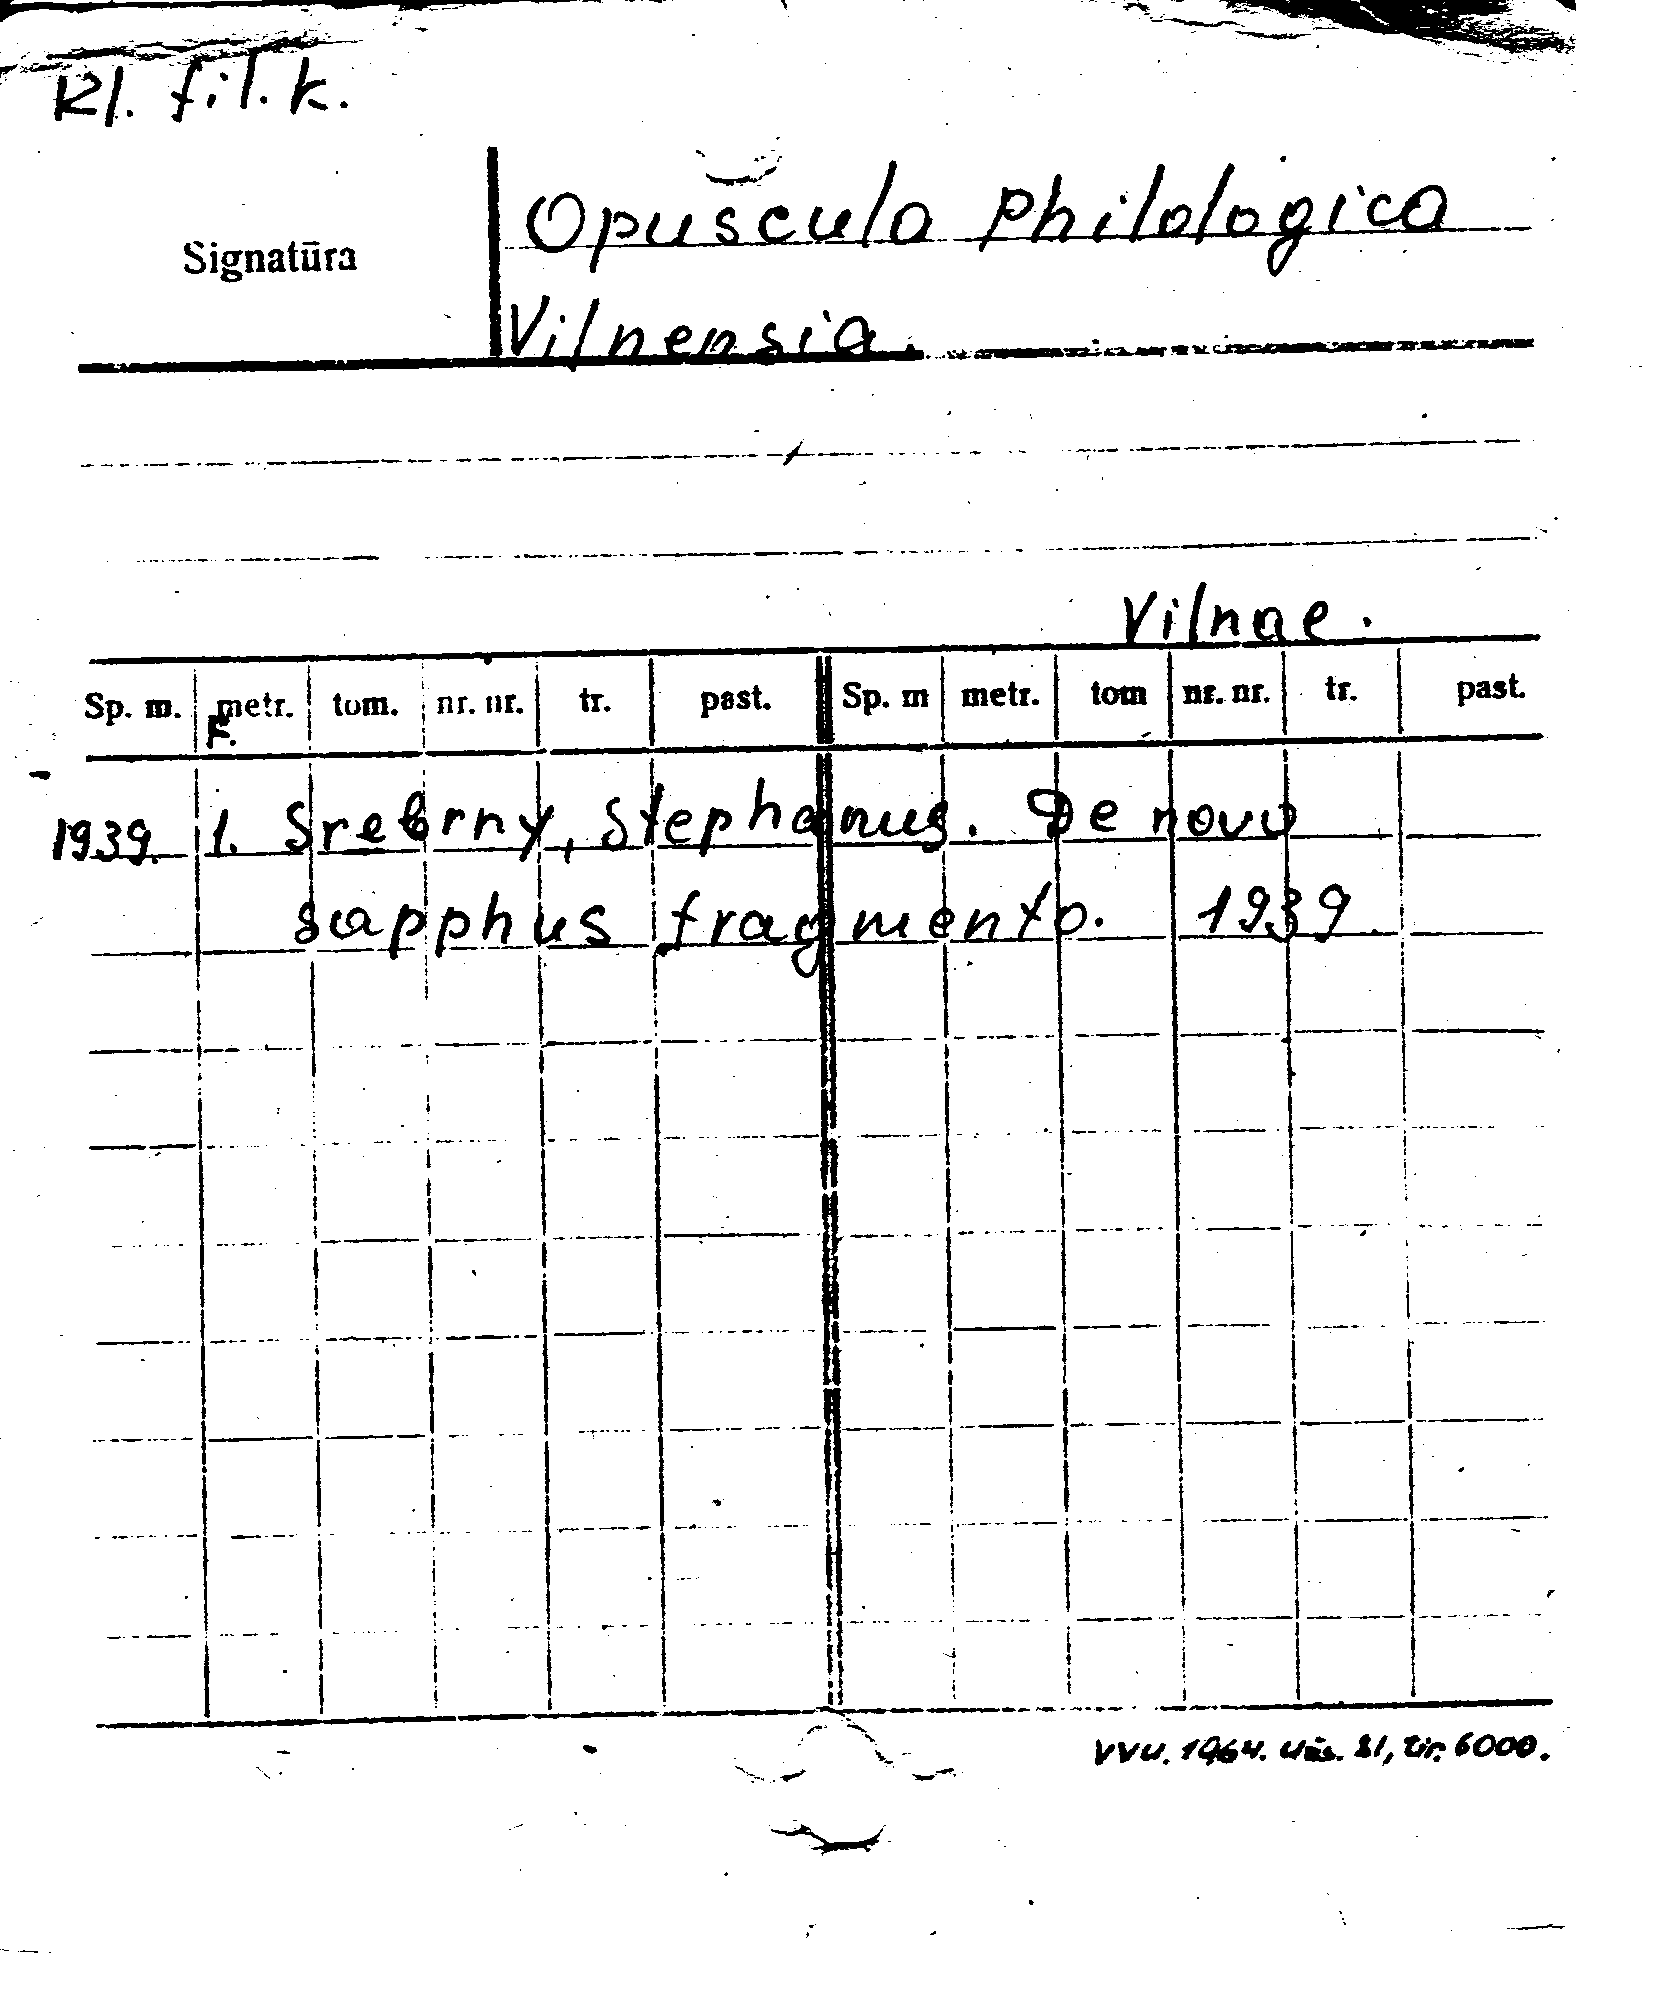 Kl. fil. k.
Signatūra
Opuscula Philologica
Vilnensia.
Vilnae.
Sp. m. metr. tom. nr. nr. tr. past. Sp. m metr. tom nr. nr. tr. past.
F.
1939. 1. Srebrny, Stephanus. De novo
Sapphus fragmento. 1939
VVU. 1964. Užs. 81, tir. 6000.